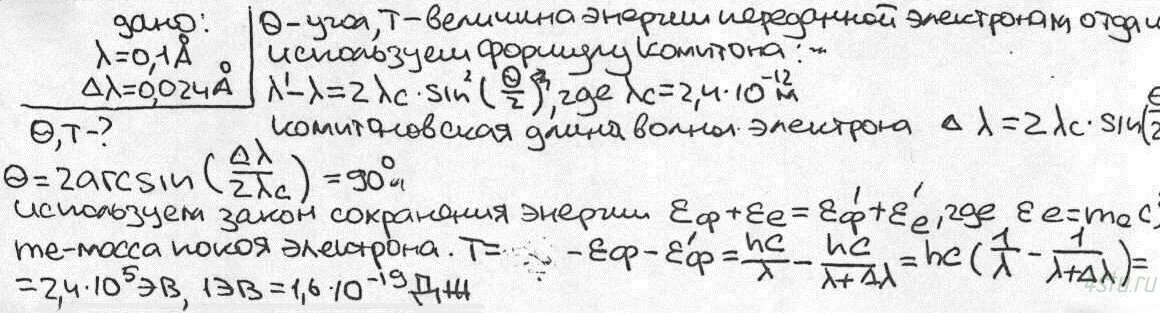 дано: θ-угол, T-величина энергии переданной электронам, отдачи
λ=0,1Å используем формулу Комптона:
Δλ=0,024Å λ'-λ=2λc·sin²(θ/2), где λc=2,4·10⁻¹²м
θ,T-? комптоновская длина волны электрона Δλ=2λc·sin(θ/2
θ=2arcsin(Δλ/2λc)=90°
используем закон сохранения энергии εф+εe=ε'ф+ε'e, где εe=mec
me-масса покоя электрона. T= -εф-ε'ф=hc/λ-hc/(λ+Δλ)=hc(1/λ-1/(λ+Δλ))=
=2,4·10⁵эВ, 1эВ=1,6·10⁻¹⁹Дж
4stu.ru